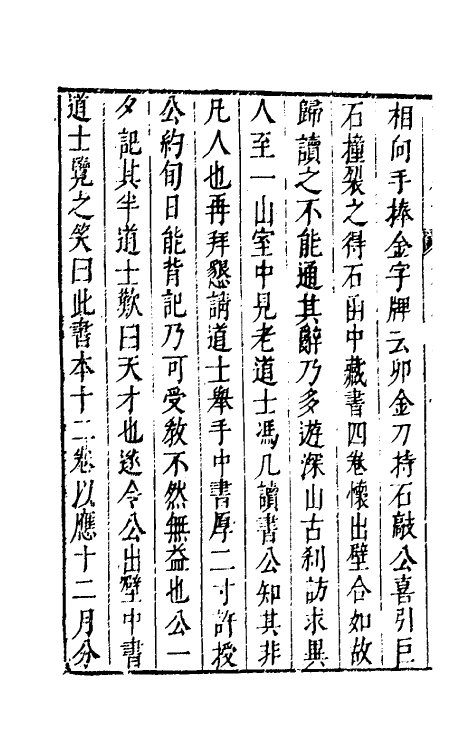 相向手捧金字牌云卯金刀持石敲公喜引巨
石撞裂之得石函中藏書四卷懷出壁合如故
歸讀之不能通其辭乃多遊深山古刹訪求異
人至一山室中見老道士馮几讀書公知其非
凡人也再拜懇請道士舉手中書厚二寸許授
公約旬日能背記乃可受教不然無益也公一
夕記其半道士歎曰天才也遂令公出壁中書
道士覽之笑曰此書本十二卷以應十二月分